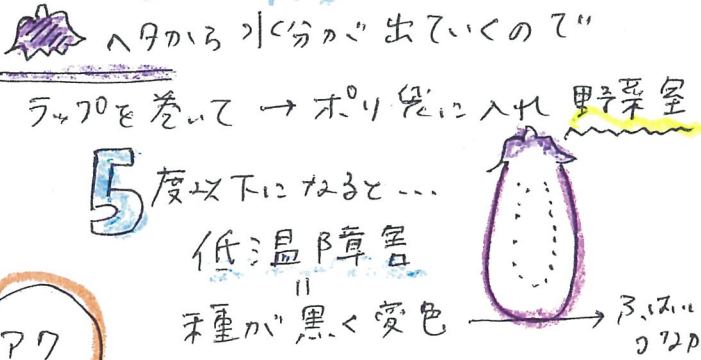 ヘタから水分が出ていくので
ラップを巻いて → ポリ袋に入れ 野菜室
5度以下になると…
低温障害
=
種が黒く変色 →
アク